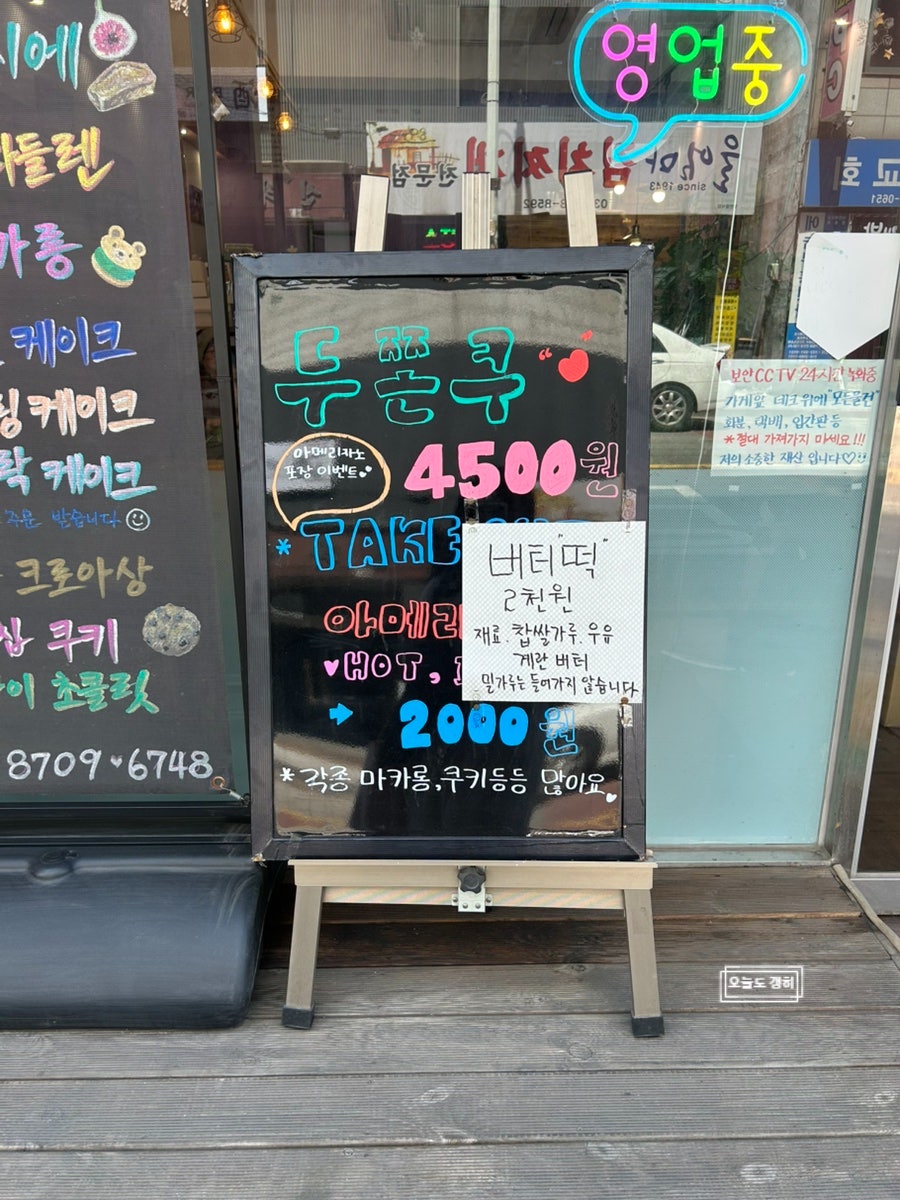 영업중
시에
마들렌
카롱
케이크
케이크
락 케이크
주문 받습니다
크로아상
쿠키
이 초콜릿
8709 6748
두쫀쿠
아메리카노
포장 이벤트
4500원
* TAKE
아메리
HOT,
2000원
* 각종 마카롱,쿠키등등 많아요
버터"떡"
2천원
재료. 찹쌀가루. 우유
계란 버터
밀가루는 들어가지 않습니다
보안 CCTV 24시간 녹화중
가게앞 데크위에 "모든물건"
화분, 택배, 입간판 등
*절대 가져가지 마세요!!!
저의 소중한 재산 입니다
김치찌개
전문점
since 1943
교회
오늘도 갱히